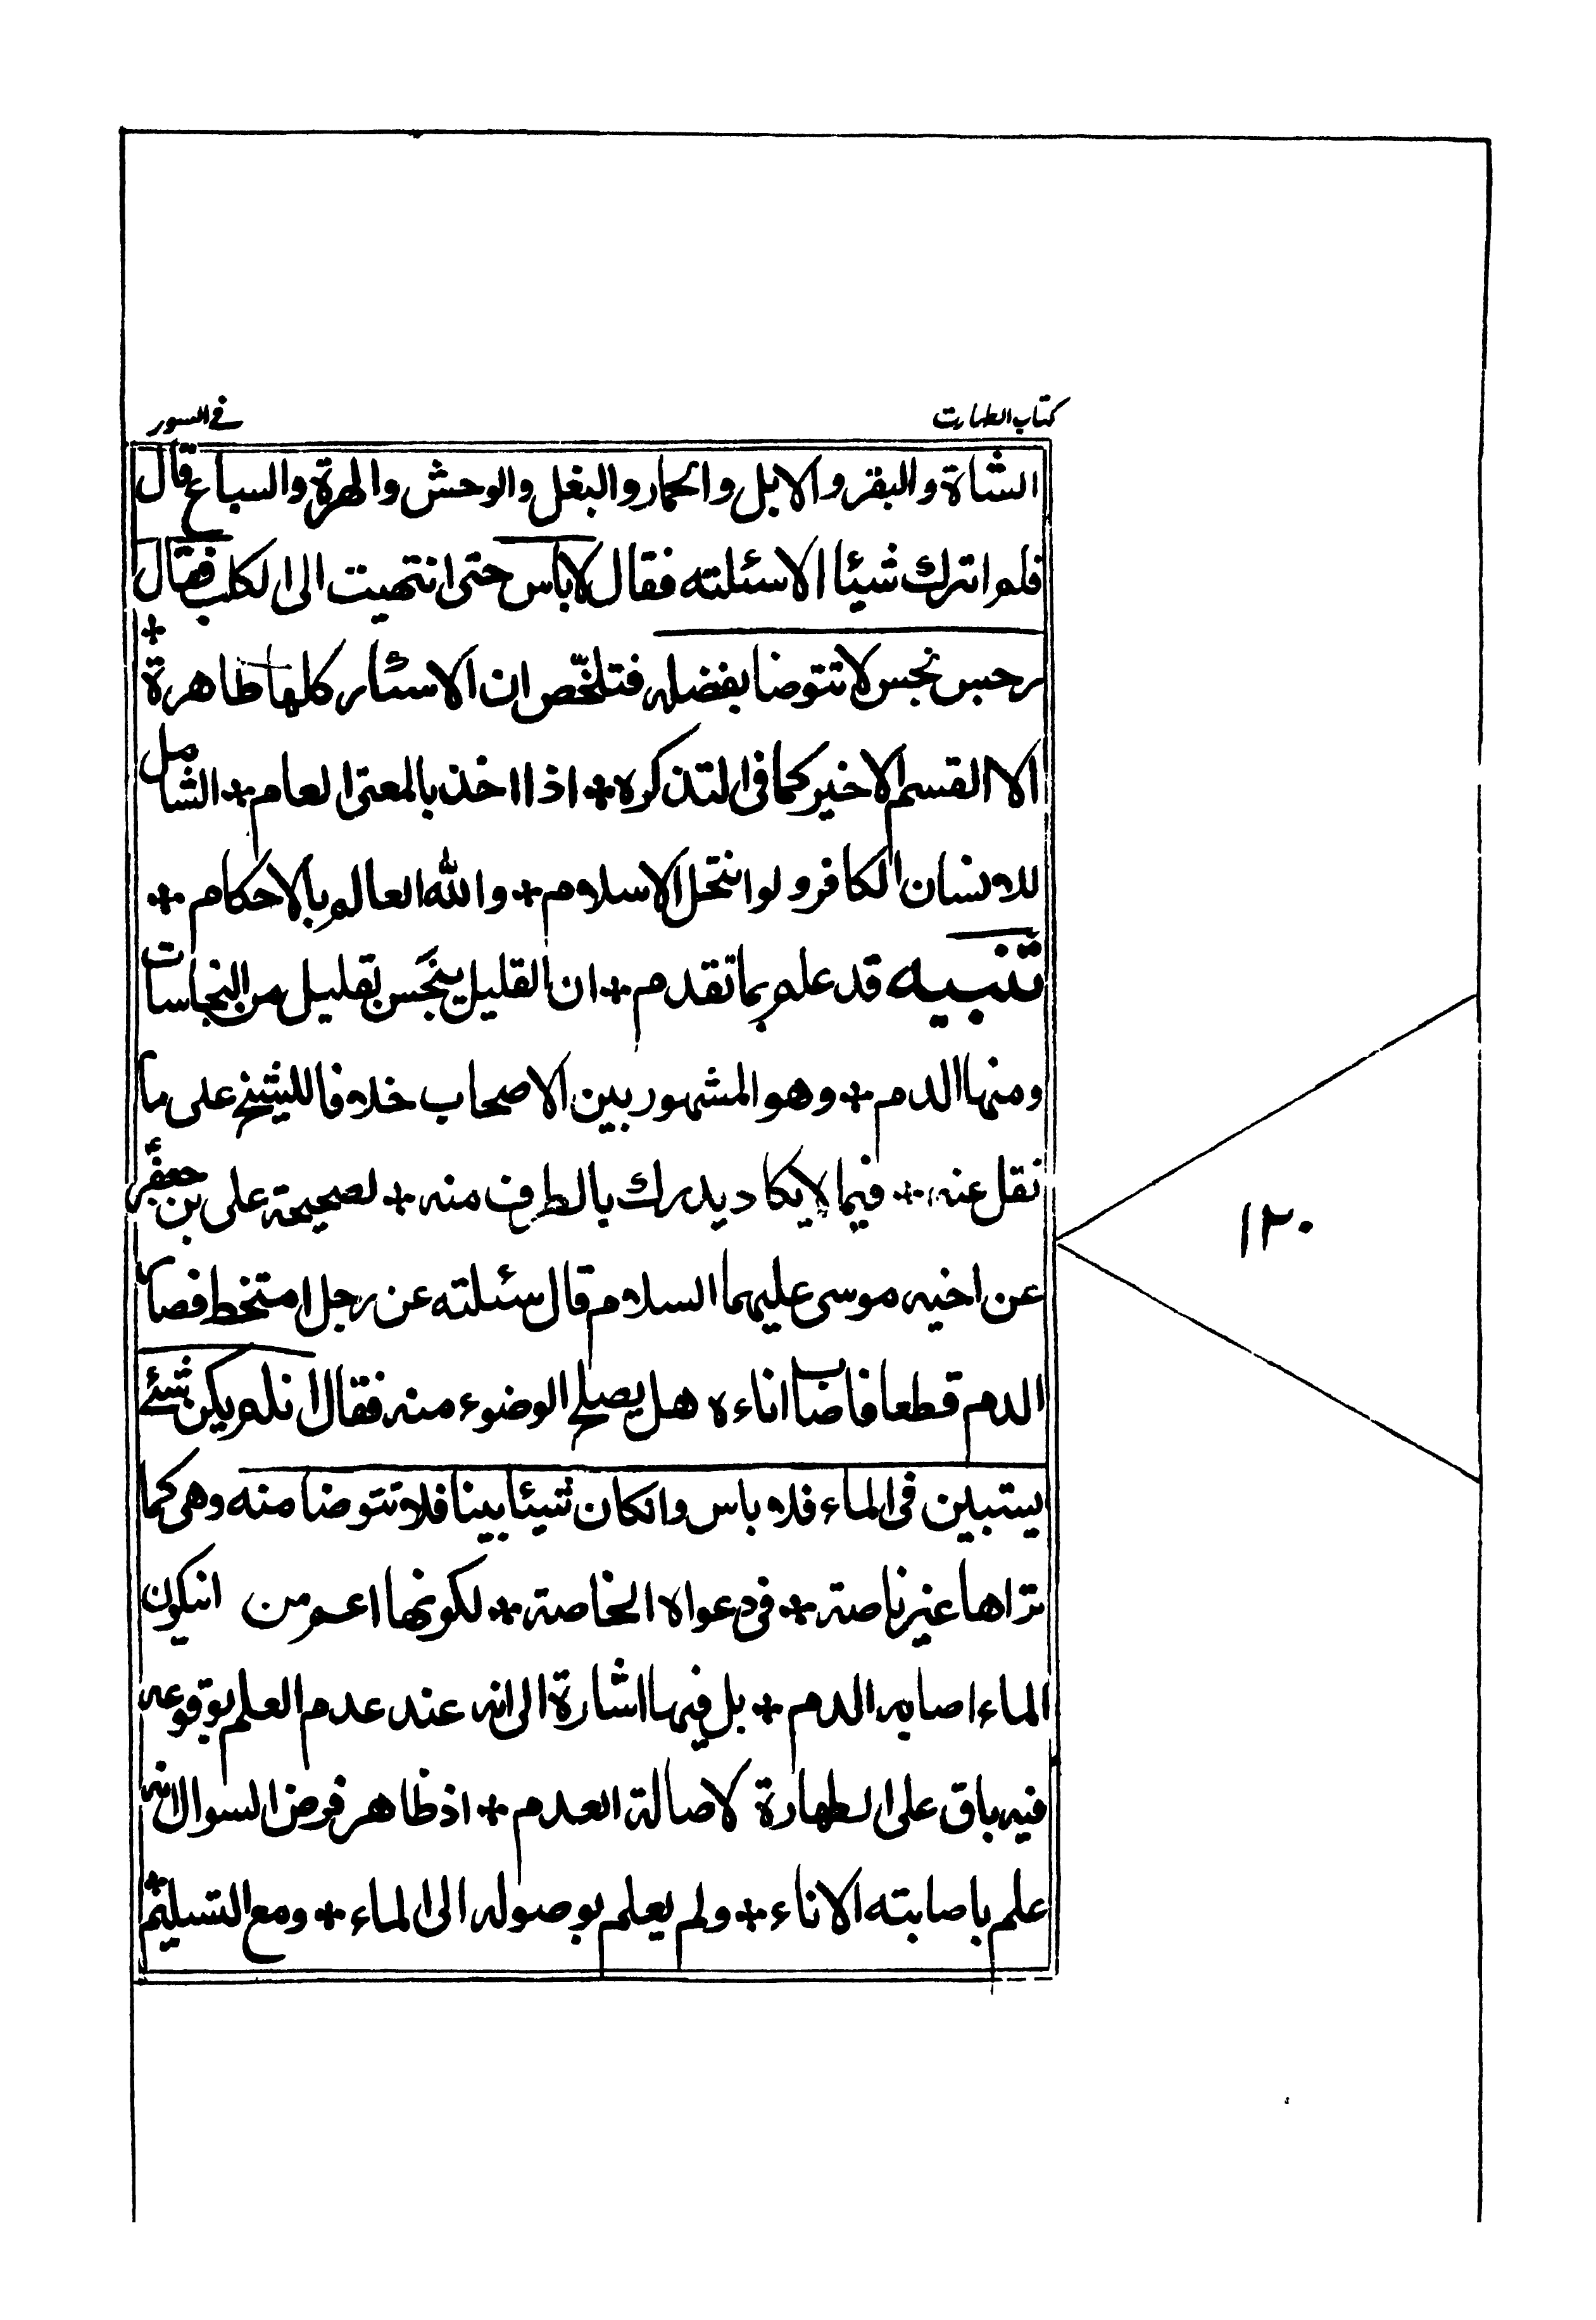 كتاب الطهارت
في السور
الشاة والبقر والابل والحمار والبغل والوحش والهرة والسباع قال
فلم اترك شيئا الا سئلته فقال لا باس حتى انتهيت الى الكلب فقال
رجس نجس لا تتوضا بفضله فتلخّص ان الاسئار كلها طاهرة +
الا القسم الاخير كما في التذكره + اذا اخذ بالمعنى العام + الشامل
للانسان الكافر ولو انتحل الاسلام + والله العالم بالاحكام +
تنبيه قد علم بما تقدم + ان القليل ينجس بقليل من النجاسات
ومنها الدم + وهو المشهور بين الاصحاب خلافا للشيخ على ما
نقل عنه + فيما لا يكاد يدرك بالطرف منه + لصحيحة على بن جعفر
عن اخيه موسى عليهما السلام قال سئلته عن رجل امتخط فصار
الدم قطعا فاصاب اناءه هل يصلح الوضوء منه فقال ان لم يكن شئ
يستبين في الماء فلا باس وان كان شيئا بينا فلا تتوضا منه وهى كما
تراها غير ناصة + في دعواه الخاصة + لكونها اعم من انيكون
الماء اصابه الدم + بل فيها اشارة الى انه عند عدم العلم بوقوعه
فيه باق على الطهارة لاصالة العدم + اذ ظاهر فرض السوال انه
علم باصابته الاناء + ولم يعلم بوصوله الى الماء + ومع التسليم +
١٢٠